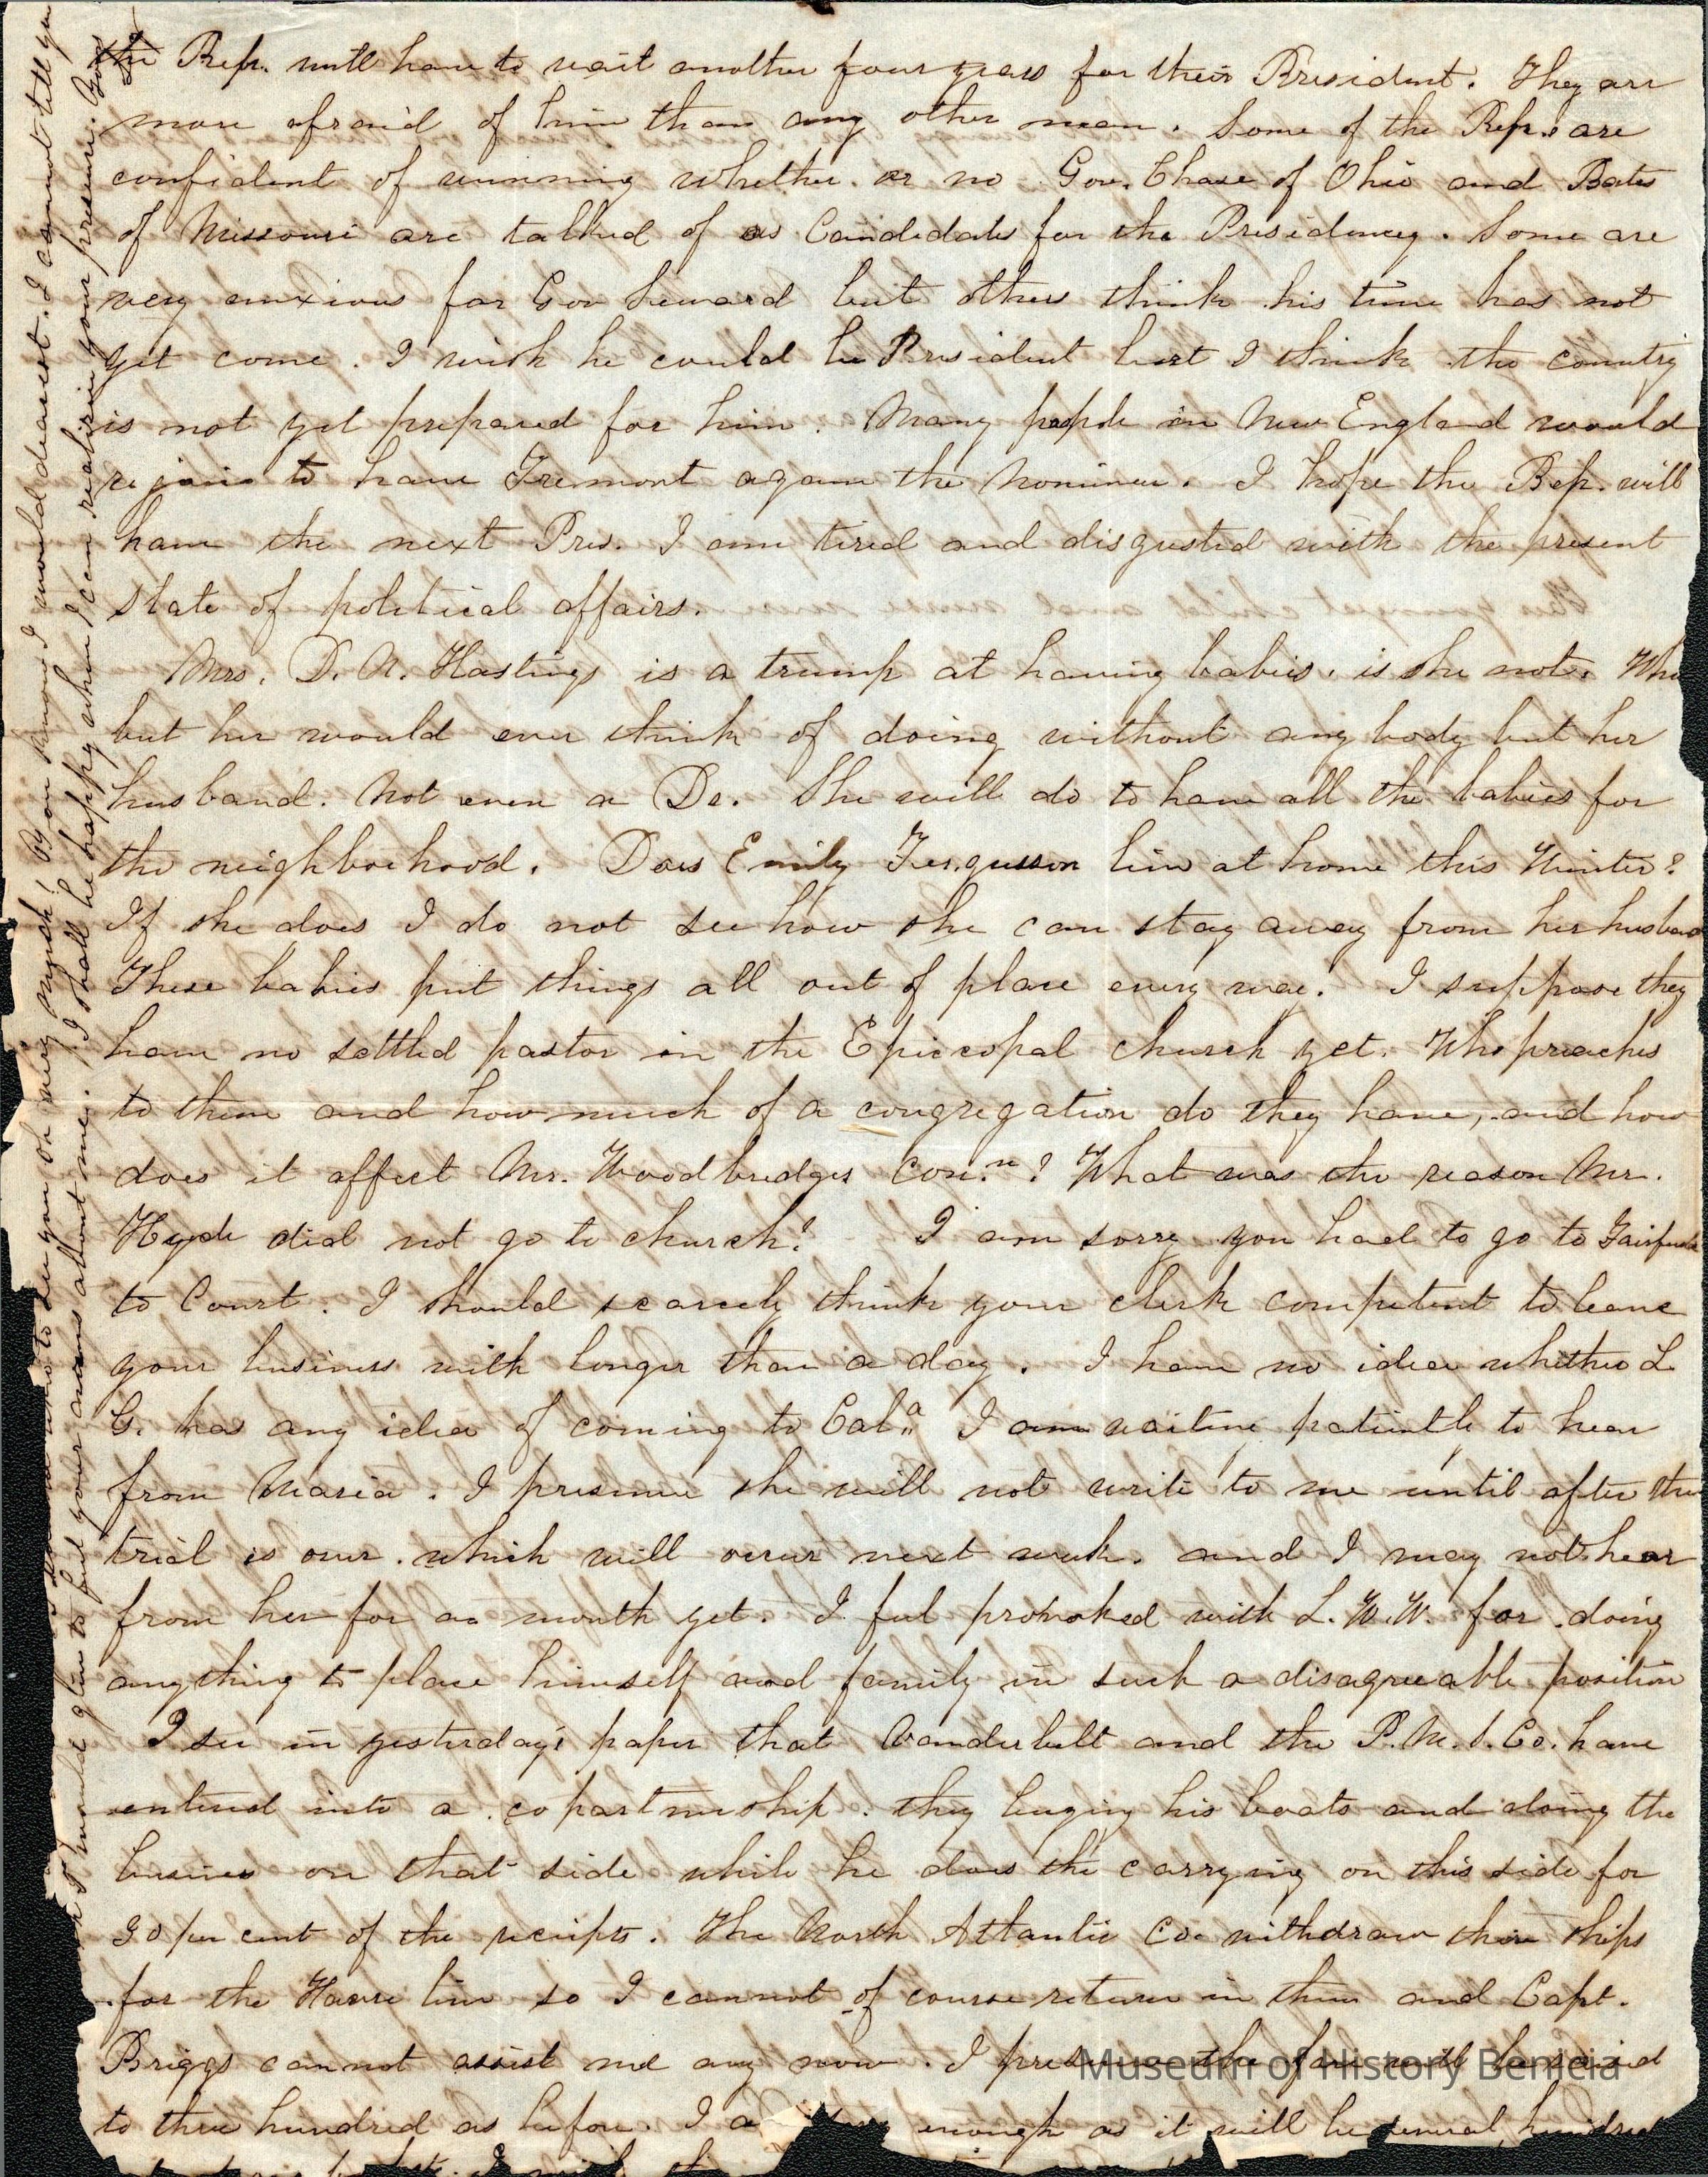 the Rep. will have to wait another four years for their President. They are
more afraid of him than any other man. Some of the Reps are
confident of winning whether or no Gov. Chase of Ohio and Bates
of Missouri are talked of as Candidates for the Presidency. Some are
very anxious for Gov Seward but others think his time has not
yet come. I wish he could be President but I think the country
is not yet prepared for him. Many people in New England would
rejoice to have Fremont again the Nominee. I hope the Rep. will
have the next Pres. I am tired and disgusted with the present
state of political affairs.
Mrs. D. N. Hastings is a trump at having babies, is she not. Who
but her would ever think of doing without any body but her
husband. Not even a Dr. She will do to have all the babies for
the neighborhood. Does Emily Fergusson live at home this Winter?
If she does I do not see how she can stay away from her husband
These babies put things all out of place every way. I suppose they
have no settled pastor in the Episcopal church yet. Who preaches
to them and how much of a congregation do they have, and how
does it affect Mr. Woodbridges Con.n? What was the reason Mr.
Hyde did not go to church? I am sorry you had to go to Fairfield
to Court. I should scarcely think your clerk competent to leave
your business with longer than a day. I have no idea whether L
G. has any idea of coming to Cal.a I am waiting patiently to hear
from Maria. I presume she will not write to me until after the
trial is over. which will occur next week. and I may not hear
from her for a month yet. I feel provoked with L. W. W. for doing
anything to place himself and family in such a disagreeable position
I see in yesterday's paper that Vanderbilt and the P. M. S. Co. have
entered into a copartnership. they buying his boats and doing the
business on that side while he does the carrying on this side for
30 per cent of the receipts. The North Atlantic Co. withdraw their ships
for the Havre line so I cannot of course return in them and Capt.
Briggs cannot assist me any now. I presume the fare will be raised
to three hundred as before. I enough as it will be several hundred
to see you oh very much! By on know I would dearest. I cannot tell you
I would give to feel your arms about me. I shall be happy when I can realizing your presence. Good
Museum of History Benicia